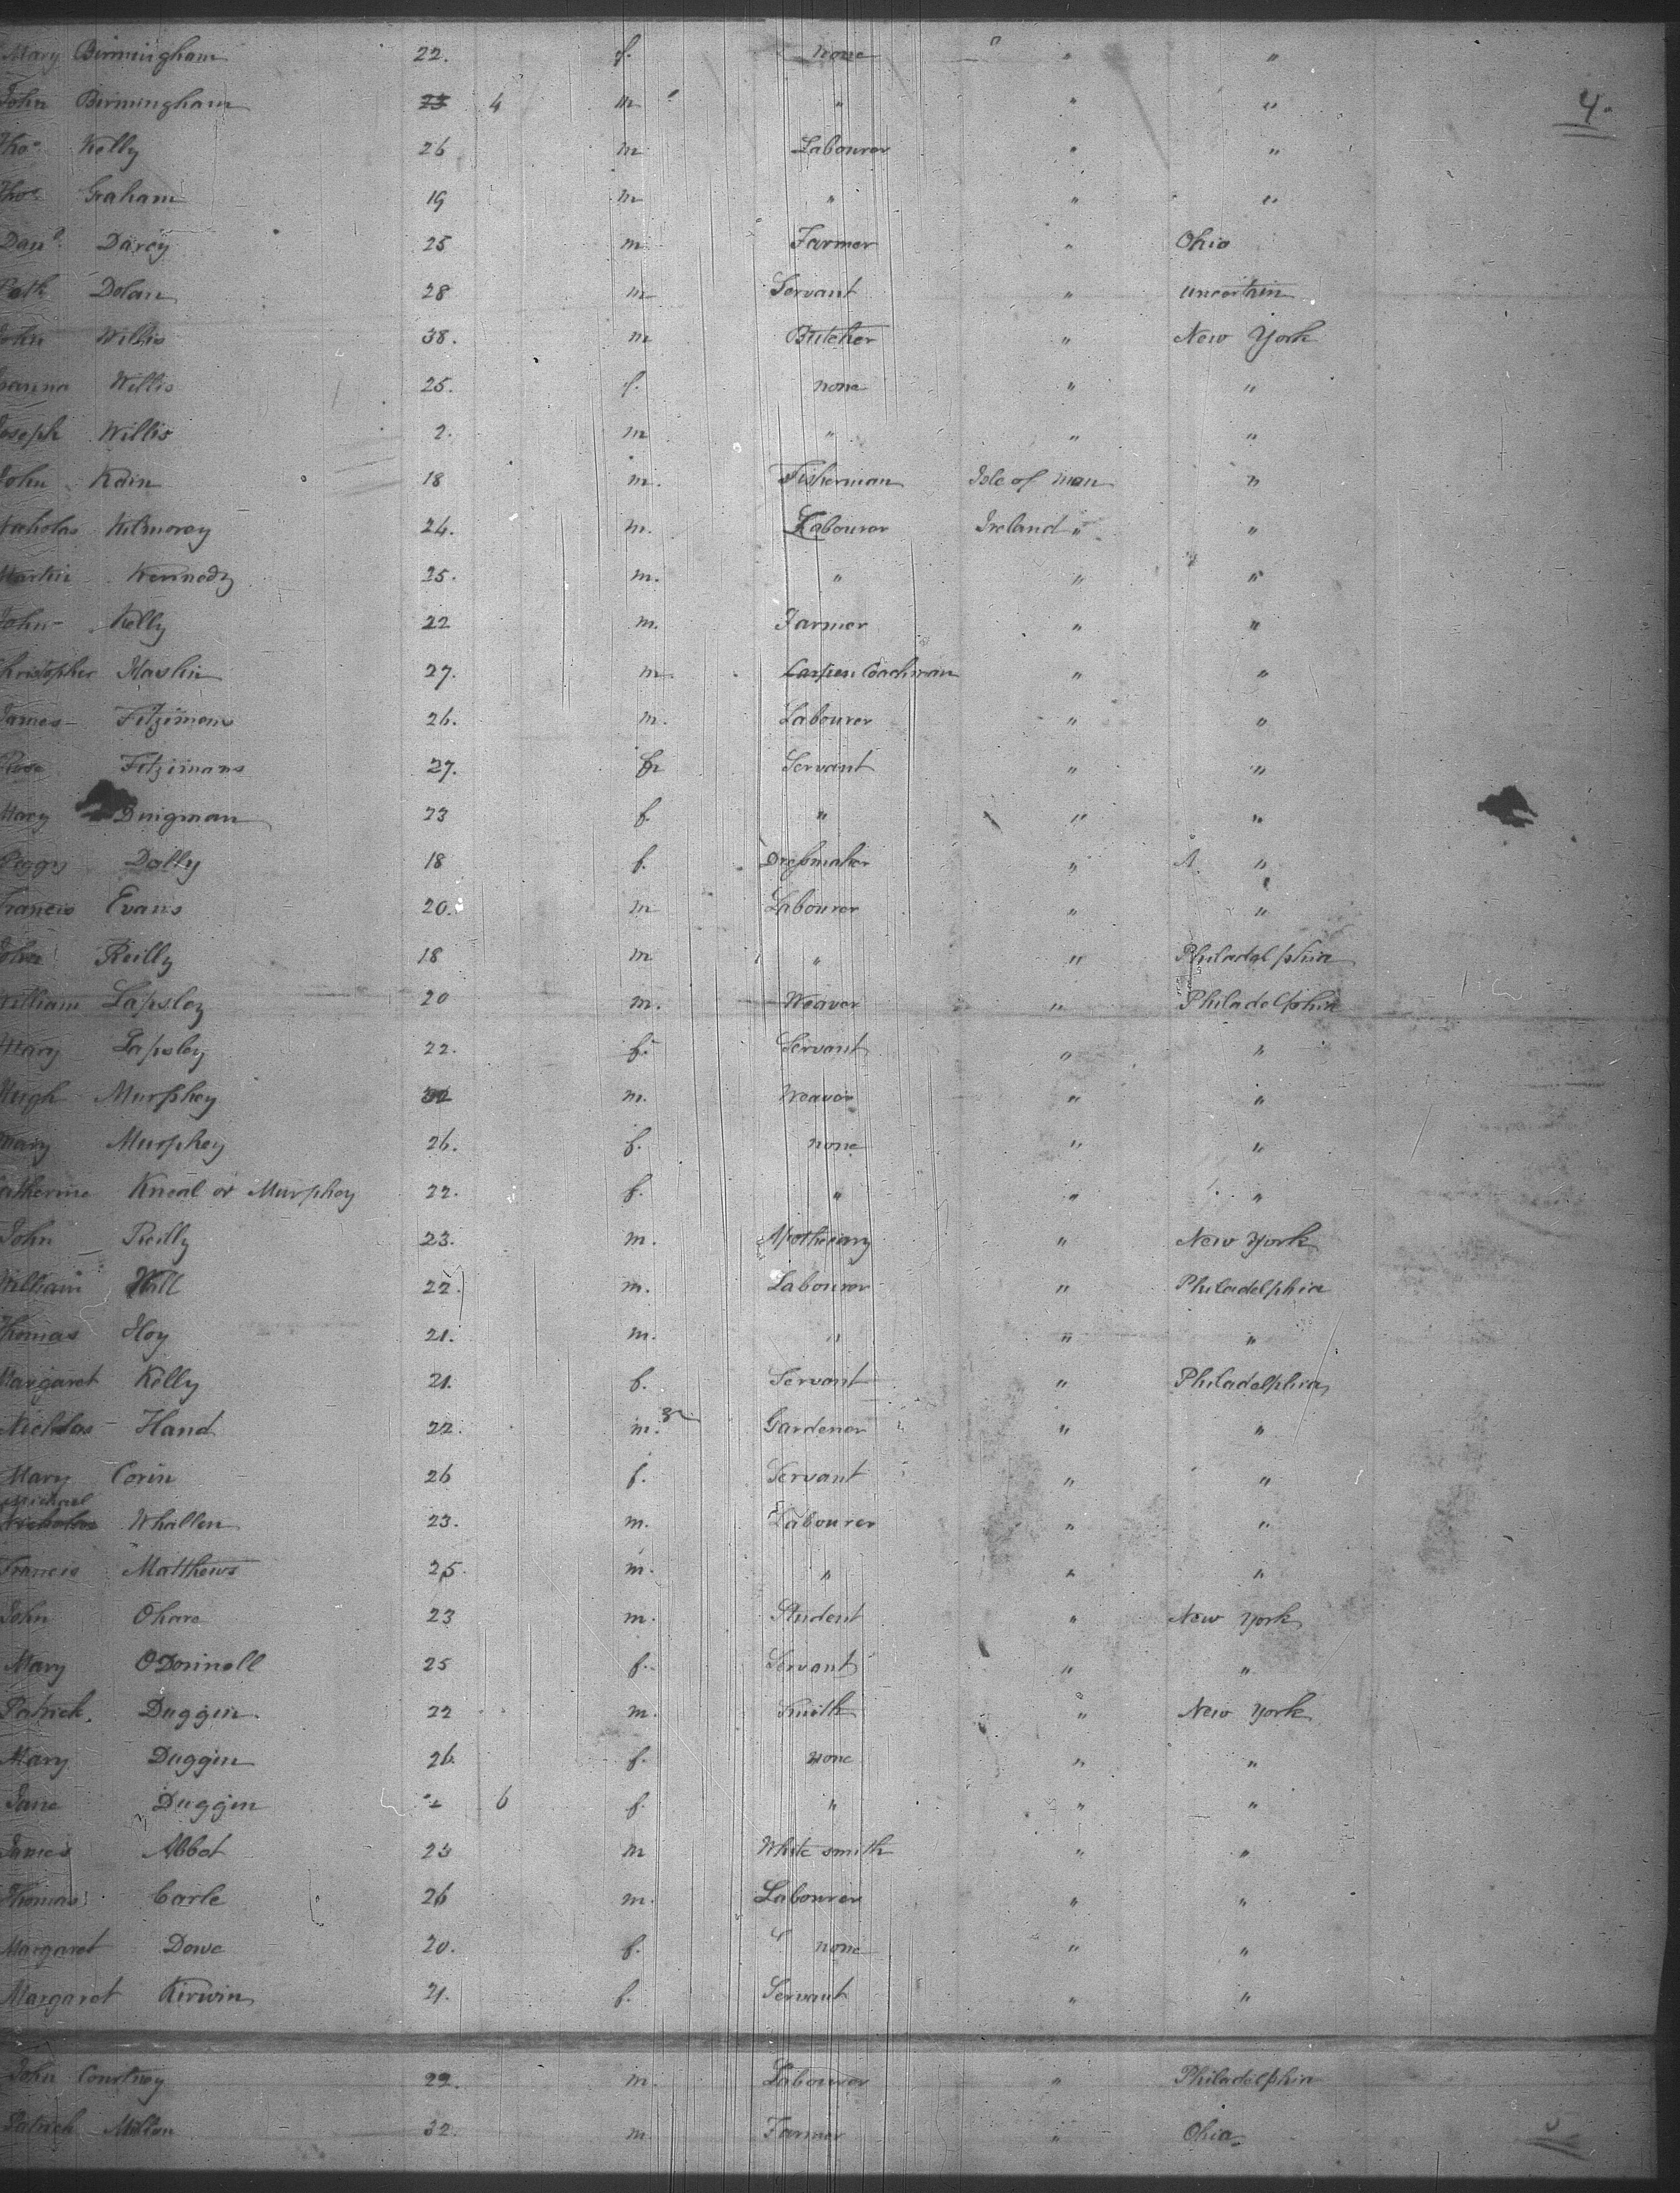 Mary Birmingham 22. f. none " " "
John Birmingham 23 4 m " " " 4.
Thos Kelly 26 m Labourer " "
Thos Graham 19 m " " "
Danl. Darcy 25 m Farmer " Ohio
Patk Dolan 28 m Servant " uncertain
John Willis 38. m Butcher " New York
oanna Willis 25. f. none " "
Joseph Willis 2. m " " "
John Kain 18 m. Fisherman Isle of man "
Nicholas Kilmorey 24. m. Labourer Ireland " "
Martin Kennedy 25. m. " " "
John Kelly 22 m. Farmer " "
hristopher Maslin 27. m. Coachman " "
James Fitzimons 26. m. Labourer " "
Rose Fitzimons 27. f Servant " "
Mary Duigman 23 f. " " "
Peggy Dolly 18 f. Dressmaker " "
Francis Evans 20. m Labourer " "
John Reilly 18 m " " Philadelphia
William Lapsley 20 m. Weaver " Philadelphia
Mary Lapsley 22. f. Servant " "
Hugh Murphey m. Weaver " "
Mary Murphey 26. f. none " "
Catherine Kneal or Murphey 22. f. " " "
John Reilly 23. m. Apothecary " New York
William Hall 22. m. Labourer " Philadelphia
Thomas Hoy 21. m. " " "
Margaret Kelly 21. f. Servant " Philadelphia
Nicholas Hand 22. m. Gardener " "
Mary Corin 26 f. Servant " "
Michael
Nicholas Whallen 23. m. Labourer " "
Francis Matthews 25. m. " " "
John Ohare 23 m. Student " New York
Mary ODonnell 25 f. Servant " "
Patrick Duggin 22 m. Smith " New York
Mary Duggin 26. f. none " "
Jane Duggin 6 f. " " "
James Abbot 23 m White smith " "
Thomas Carle 26 m. Labourer " "
Margaret Dowe 20. f. none " "
Margaret Kirwin 21. f. Servant " "
John Courtney 22. m. Labourer " Philadelphia
Patrick Millan 32. m. Farmer " Ohio